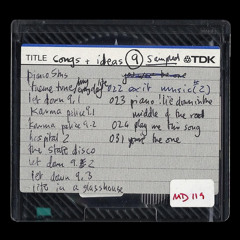 TITLE songs + ideas 9 sampled TDK
piano sms
theme tune
022 exit music (2)
let down 9.1
023 piano! lie down in the
karma police 9.1
middle of the road
karma police 9.2
024 play me this song
hospital 2
031 you're the one
the state disco
let down 9.2
let down 9.3
life in a glasshouse
MD 119